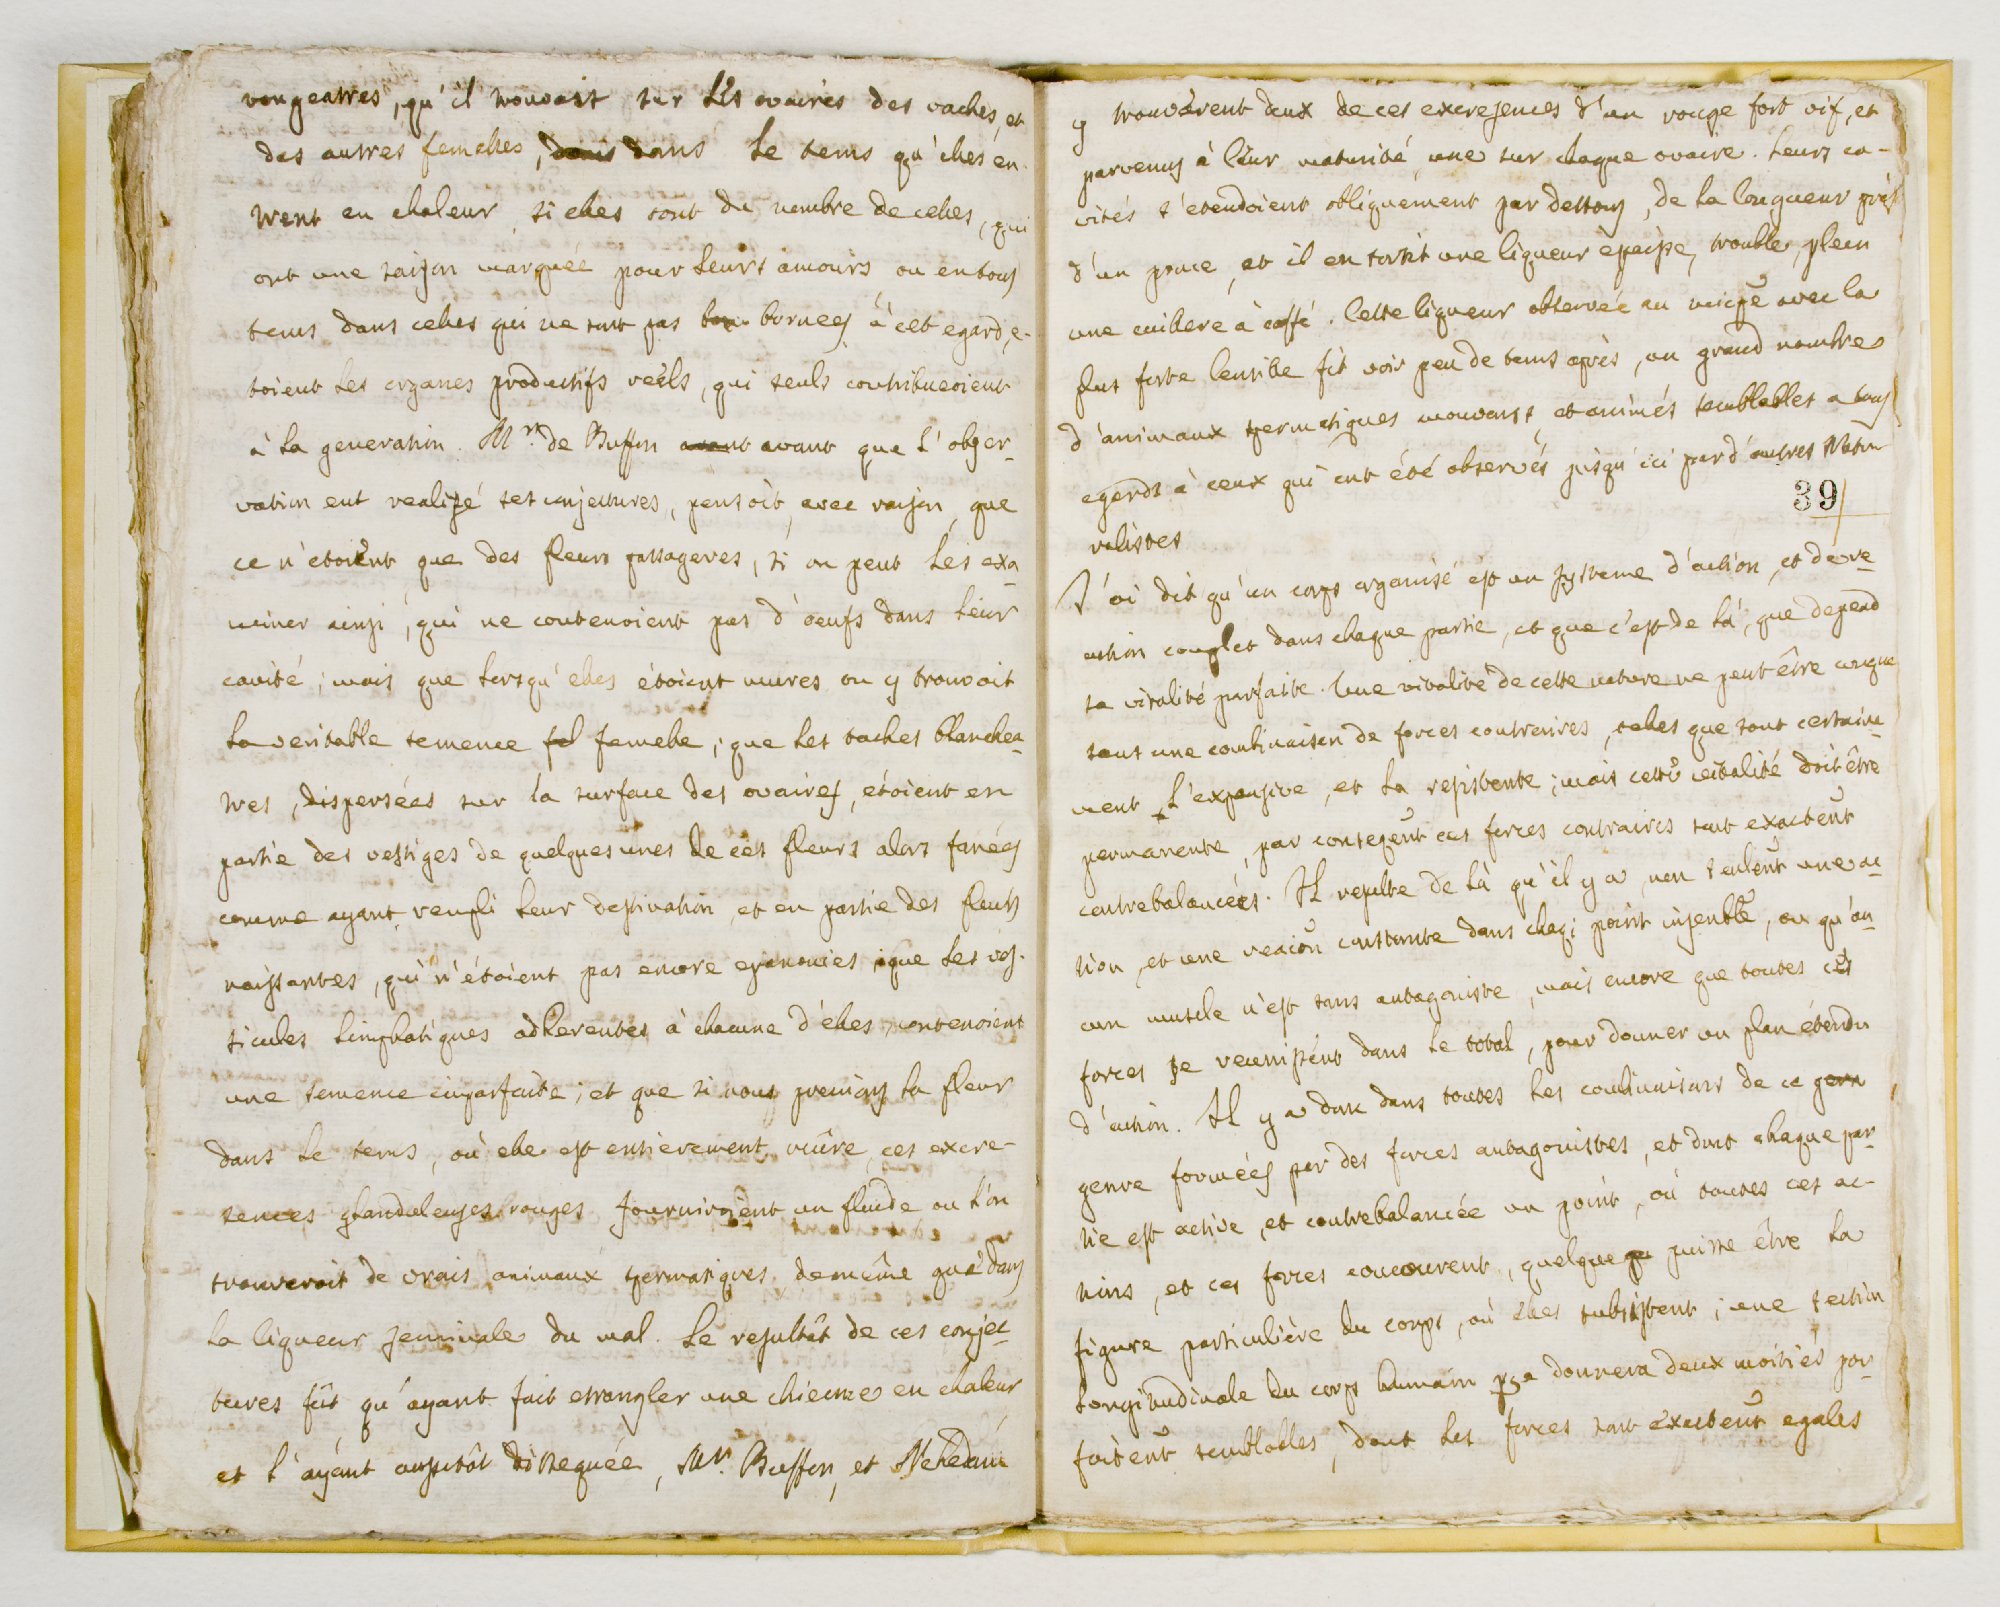 rougeatres, qu'il trouvoit sur les ovaires des vaches, et
des autres femelles, dans dans le tems qu'elles en-
trent en chaleur si elles sont du nombre de celles, qui
ont une saison marquée pour leurs amours ou en tous
tems dans celles qui ne sont pas bornées à cet egard, e-
toient les organes productifs reels, qui seuls contribueoient
à la generation. Mr. de Buffon avant avant que l'obser-
vation eut realizé ses conjectures, pensoit, avec raison, que
ce n'etoient que des fleurs passageres, si on peut les exa-
miner ainsi, qui ne contenoient pas d'oeufs dans leur
cavité; mais que lorsqu'elles étoient mures on y trouvoit
la veritable semence fel femelle; que les taches blanchea-
tres, dispersées sur la surface des ovaires, étoient en
partie des vestiges de quelques unes de ces fleurs alors fanées
comme ayant rempli leur destination, et en partie des fleurs
naissantes, qui n'étoient pas encore epanouies, que les ves-
ticules limphatiques adherentes à chacune d'elles contenoient
une semence imparfaite; et que si nous prenions la fleur
dans le tems, où elle est entierement mûre, ces excre-
sences glanduleuses rouges fourniroient un fluide ou l'on
trouveroit de vrais animaux spermatiques de même que dans
la liqueur seminale du mal. Le resultât de ces conjec-
tures fût qu'ayant fait etrangler une chienne en chaleur
et l'ayant aussitôt dissequée, Mr. Buffon, et Nehedam
y trouvèrent deux de ces excresences d'un rouge fort vif, et
parvenus à leur maturité, une sur chaque ovaire. Leurs ca-
vités s'etendoient obliquement par dessous, de la longueur près
d'un pouce, et il en sortit une liqueur epaisse, trouble, plein
une cuillere à caffé. Cette liqueur observée au micrpe avec la
plus forte lentille fit voir peu de tems après, un grand nombre
d'animaux spermatiques mouvans, et animés semblables a tous
egards à ceux qui ont été observés jusqu'ici par d'autres Natu-
39
ralistes
J'ai dit qu'un corps organisé est un systeme d'action, et de re-
action complet dans chaque partie, et que c'est de là, que depend
sa vitalité parfaite. Une vitalité de cette nature ne peut être conçue
sans une combinaison de forces contraires, telles que sont certaine-
ment l'expansive, et la resistente; mais cette vitalité doit être
permanente, par consequent ces forces contraires sont exactent
contrebalancées. Il resulte de là qu'il y a, non seulent une ac-
tion, et une reacion constante dans chaq; point insenble, ou qu'au-
cun muscle n'est sans antagoniste, mais encore que toutes ces
forces se reunissent dans le total, pour donner un plan étendu
d'action. Il y a donc dans toutes les combinaisons de ce genr
genre formées par des forces antagonistes, et dont chaque par-
tie est active, et contrebalancée un point, où toutes ces ac-
tions, et ces forces concourent, quelque pu puisse être la
figure particulière du corps, où elles subsistent; une section
longitudinale du corps humain donnera deux moitiés par-
faitent semblables, dont les forces sont exactent egales